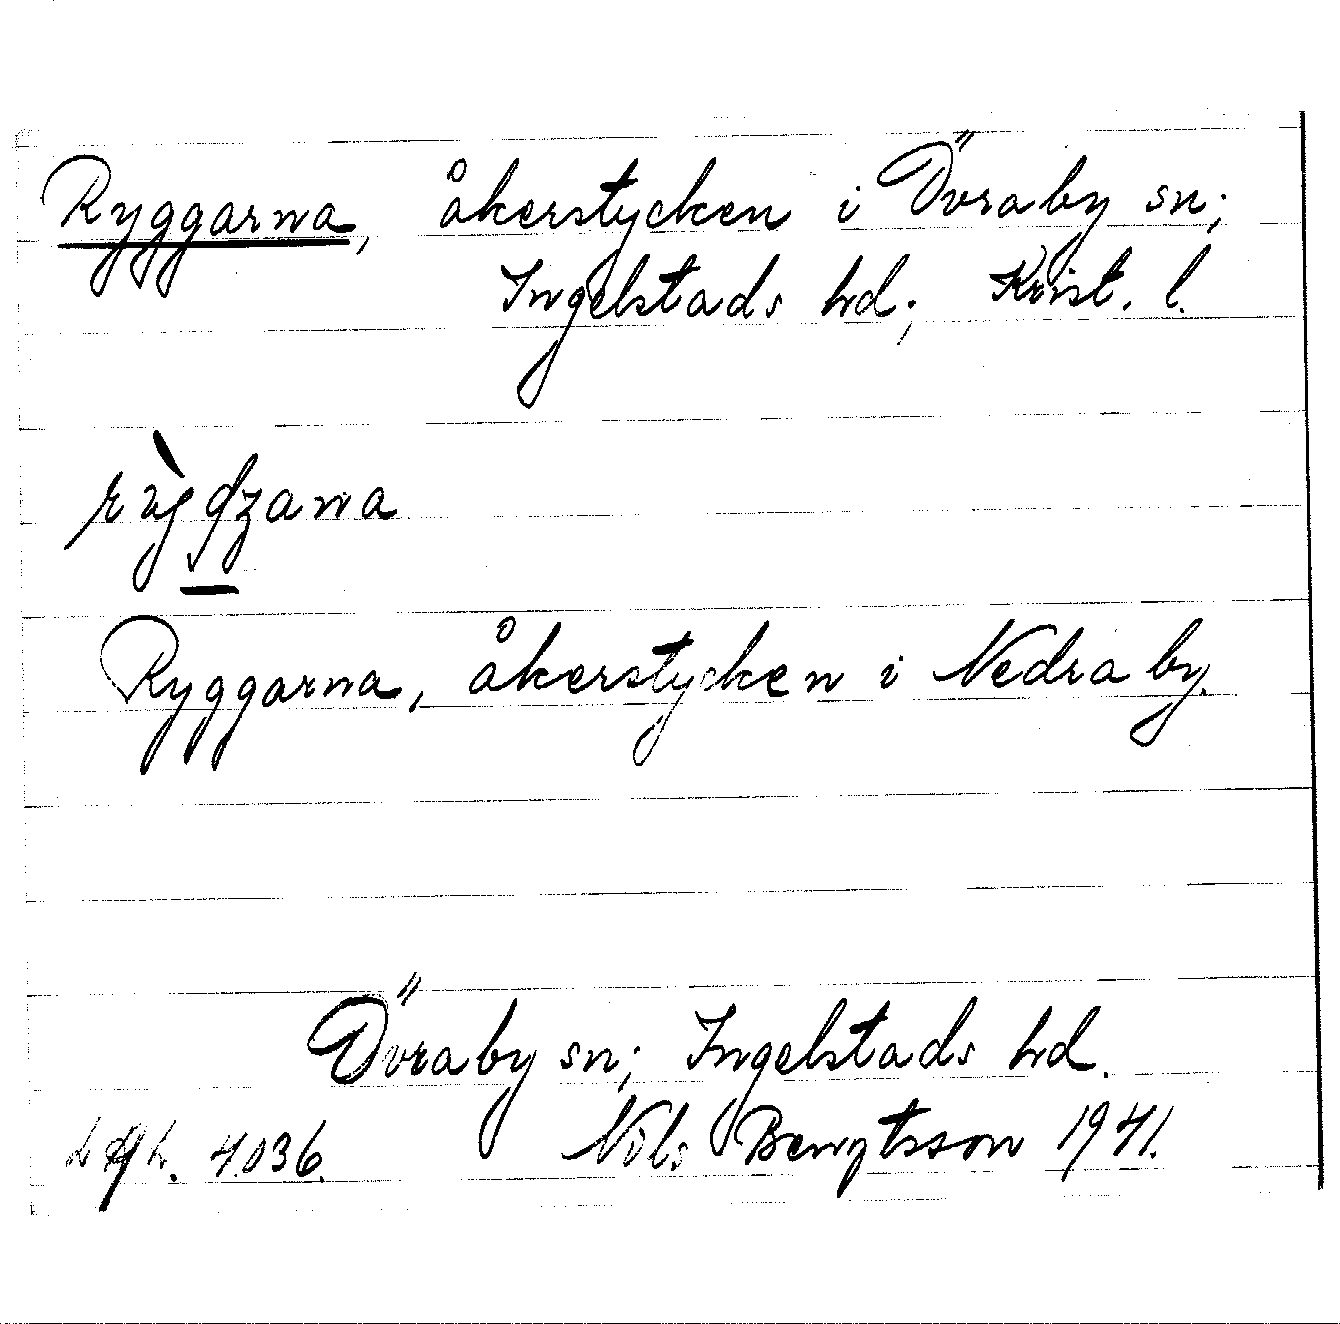 Ryggarna, åkerstycken i Övraby sn;
Ingelstads hd; Krist. l.
Ryggarna, åkerstycken i Nedraby.
Övraby sn; Ingelstads hd.
4036. Nils Bengtsson 1941.